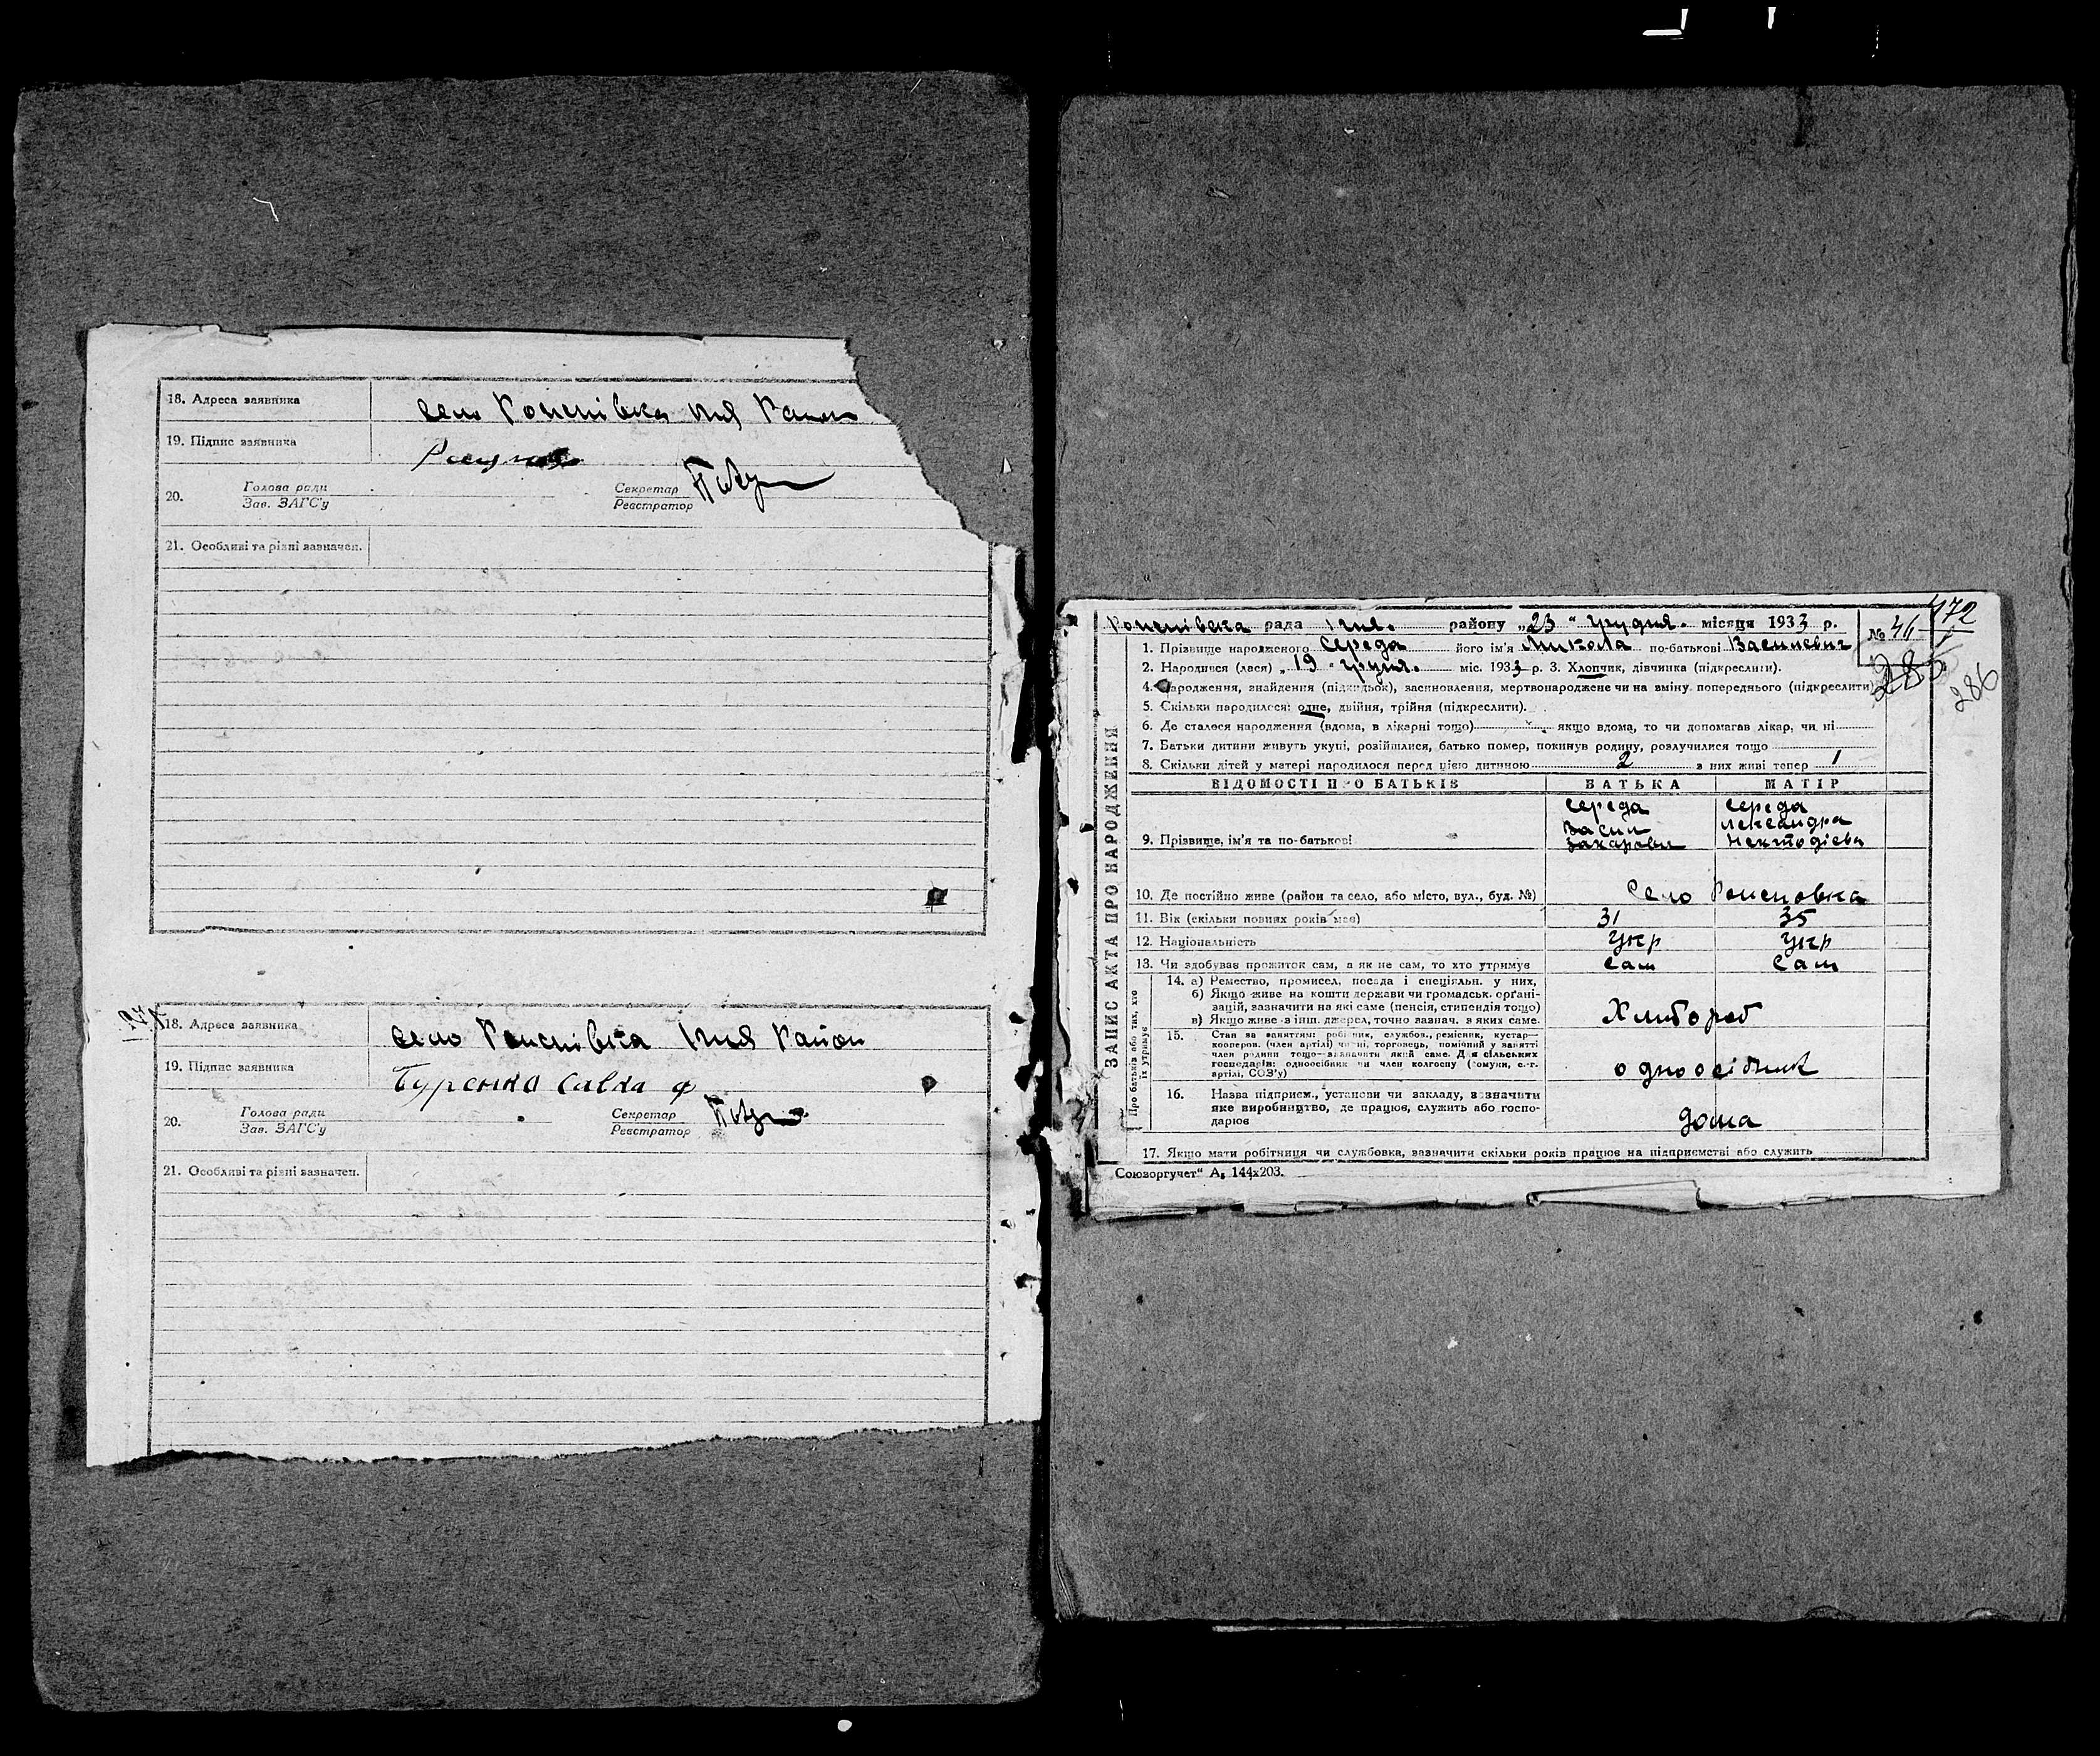 18. Адреса заявника
село
19. Підпис заявника
20. Голова ради Секретар
Зав. ЗАГС'у Реєстратор
21. Особливі та різні зазначен.
18. Адреса заявника село район
19. Підпис заявника Буренко Савка Ф
20. Голова ради Секретар
Зав. ЗАГС'у Реєстратор
21. Особливі та різні зазначен.
172
рада району „23“ грудня. місяця 1933 р. № 46
1. Прізвище народженого Середа його ім'я Микола по-батькові Василевич
2. Народився (лася) „19“ грудн. міс. 1933 р. 3. Хлопчик, дівчинка (підкреслити).
285
286
4. Народження, знайдення (підкидьок), засиновлення, мертвонароджене чи на вміну попереднього (підкреслити)
5. Скільки народилося: одне, двійня, трійня (підкреслити).
6. Де сталося народження (вдома, в лікарні тощо) якщо вдома, то чи допомагав лікар, чи ні
7. Батьки дитини живуть укупі, розійшлися, батько помер, покинув родину, розлучилися тощо
8. Скільки дітей у матері народилося перед цією дитиною 2 з них живі тепер 1
ЗАПИС АКТА ПРО НАРОДЖЕННЯ
ВІДОМОСТІ ПРО БАТЬКІВ БАТЬКА МАТІР
Середа Середа
Васил лександра
9. Прізвище, ім'я та по-батькові Захарович
10. Де постійно живе (район та село, або місто, вул., буд. №) Село
11. Вік (скільки повних років має) 31 35
12. Національність Укр Укр
13. Чи здобуває прожиток сам, а як не сам, то хто утримує сам сам
Про батьків або тих, хто їх утримує
14. а) Ремество, промисел, посада і спеціяльн. у них,
б) Якщо живе на кошти держави чи громадськ. орґані-
зацій, зазначити на які саме (пенсія, стипендія тощо)
в) Якщо живе з інш. джерел, точно зазнач. з яких саме. Хлибороб
15. Стан за заняттям: робітник, службов., ремісник, кустар—
кооперов. (член артілі) чи ні, торговець, помічний у занятті
член родини тощо—зазначити який саме. Для сільських
господарів: одноосібник чи член колгоспу (комуни, с.-г.
артілі, СОЗ'у) одноосібник
16. Назва підприєм., установи чи закладу, зазначити
яке виробництво, де працює, служить або госпо-
дарює дома
17. Якщо мати робітниця чи службовка, зазначити скільки років працює на підприємстві або служить
Союзоргучет“ А₅ 144х203.